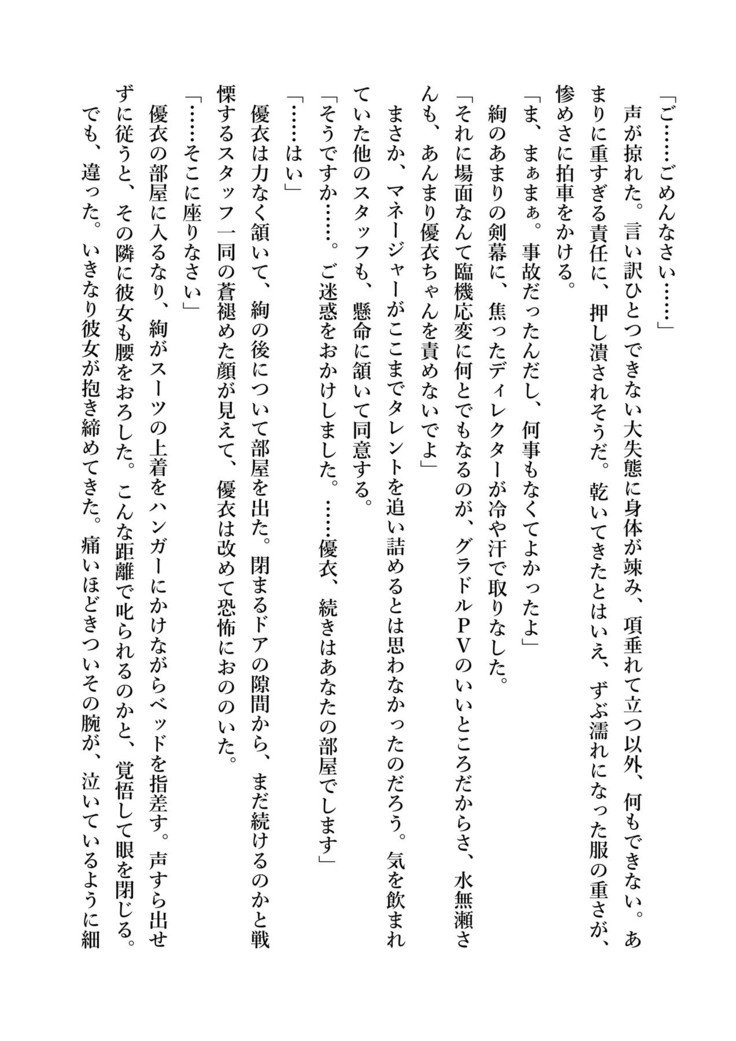 「ご……ごめんなさい……」
　声が掠れた。言い訳ひとつできない大失態に身体が竦み、項垂れて立つ以外、何もできない。あ
まりに重すぎる責任に、押し潰されそうだ。乾いてきたとはいえ、ずぶ濡れになった服の重さが、
惨めさに拍車をかける。
「ま、まぁまぁ。事故だったんだし、何事もなくてよかったよ」
　絢のあまりの剣幕に、焦ったディレクターが冷や汗で取りなした。
「それに場面なんて臨機応変に何とでもなるのが、グラドルＰＶのいいところだからさ、水無瀬さ
んも、あんまり優衣ちゃんを責めないでよ」
　まさか、マネージャーがここまでタレントを追い詰めるとは思わなかったのだろう。気を飲まれ
ていた他のスタッフも、懸命に頷いて同意する。
「そうですか……。ご迷惑をおかけしました。……優衣、続きはあなたの部屋でします」
「……はい」
　優衣は力なく頷いて、絢の後について部屋を出た。閉まるドアの隙間から、まだ続けるのかと戦
慄するスタッフ一同の蒼褪めた顔が見えて、優衣は改めて恐怖におののいた。
「……そこに座りなさい」
　優衣の部屋に入るなり、絢がスーツの上着をハンガーにかけながらベッドを指差す。声すら出せ
ずに従うと、その隣に彼女も腰をおろした。こんな距離で叱られるのかと、覚悟して眼を閉じる。
　でも、違った。いきなり彼女が抱き締めてきた。痛いほどきついその腕が、泣いているように細